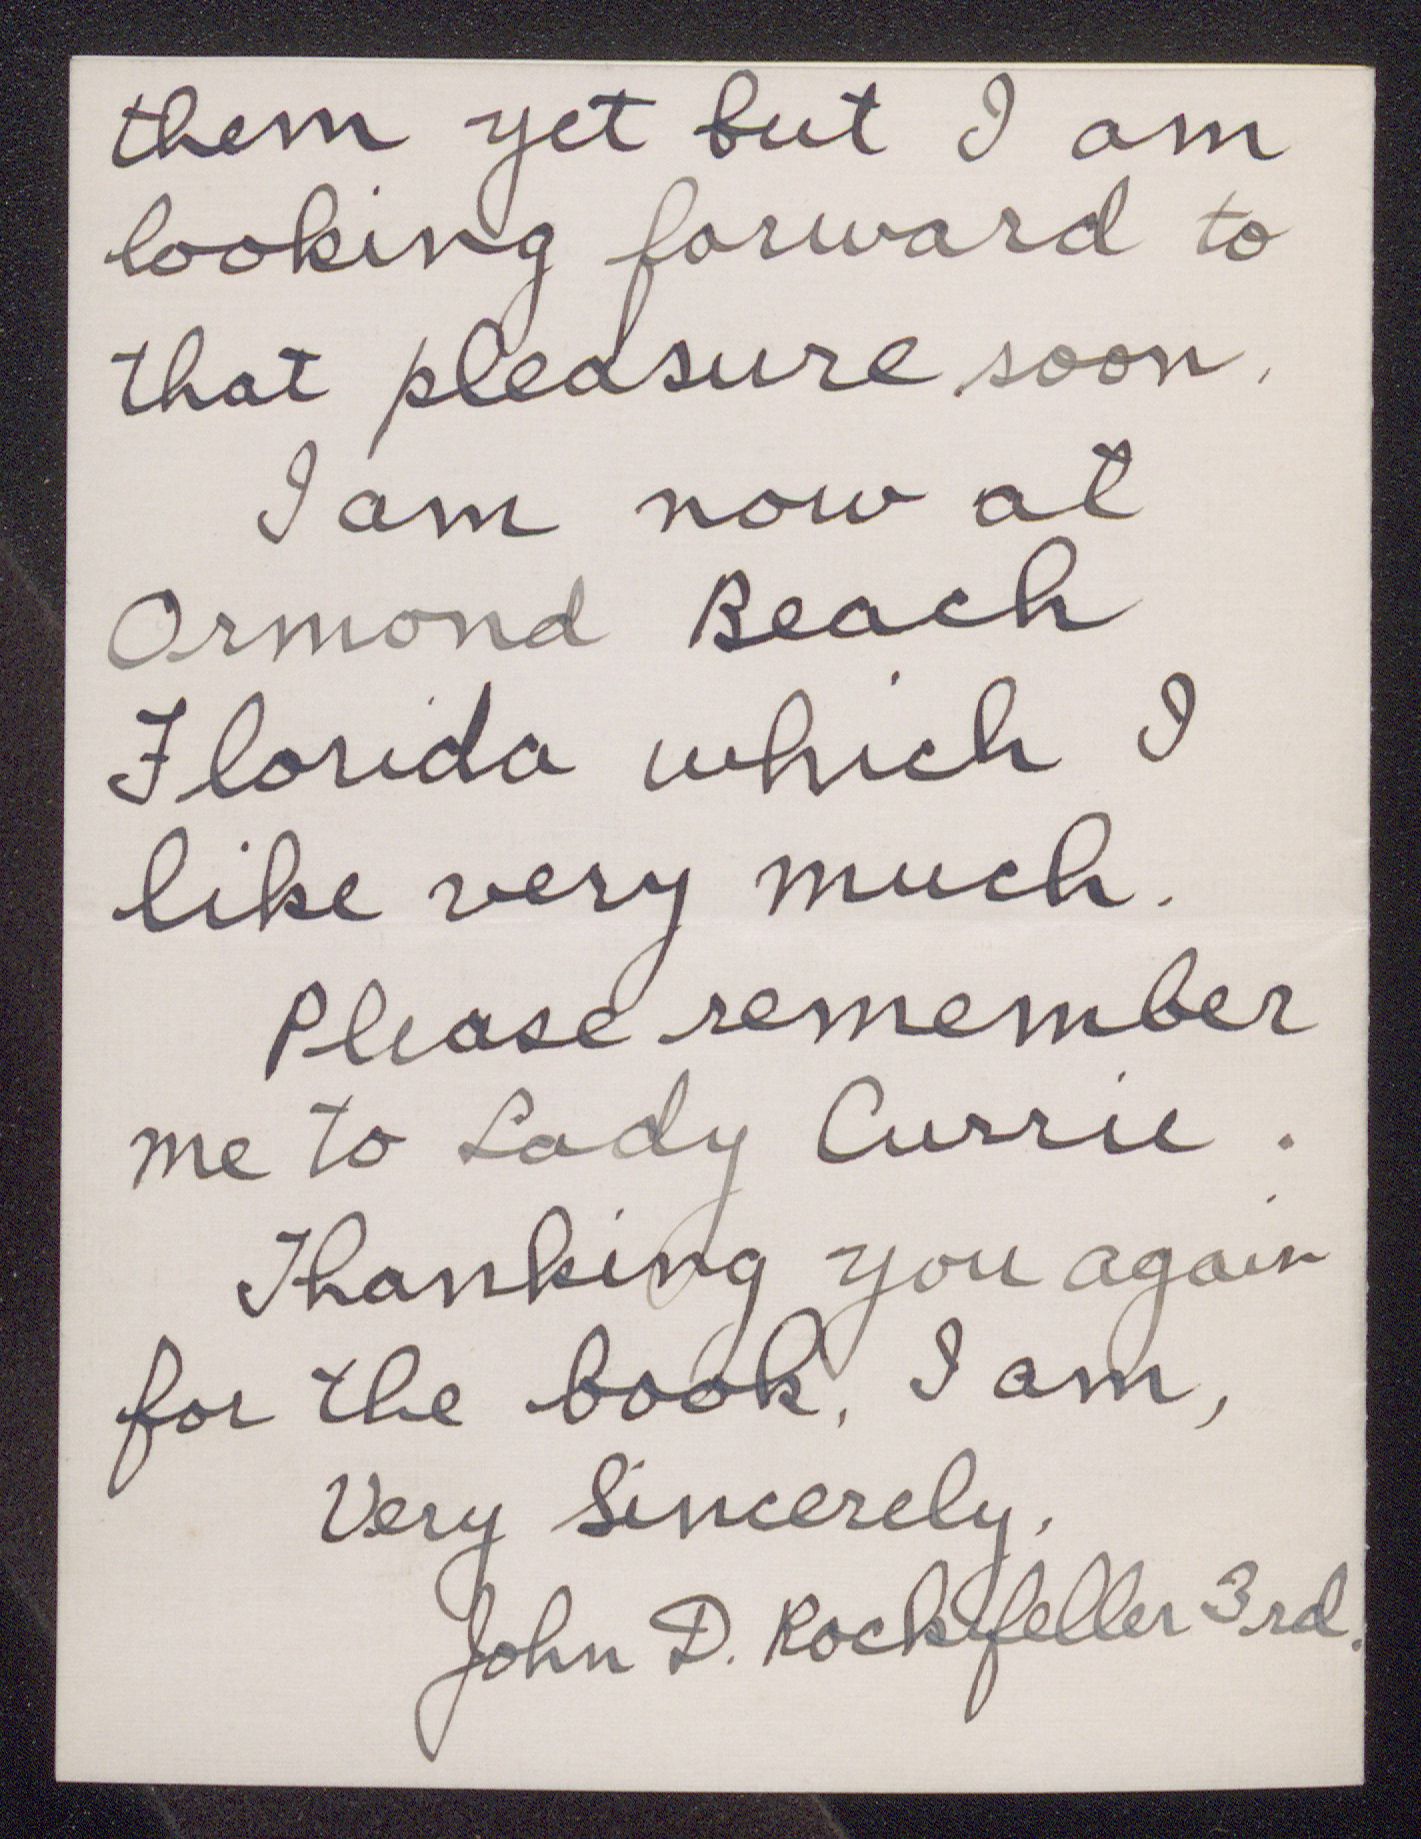 them yet but I am
looking forward to
that pleasure soon.
I am now at
Ormond Beach
Florida which I
like very much.
Please remember
me to Lady Currie.
Thanking you again
for the book, I am,
Very Sincerely,
John D. Rockefeller 3rd.